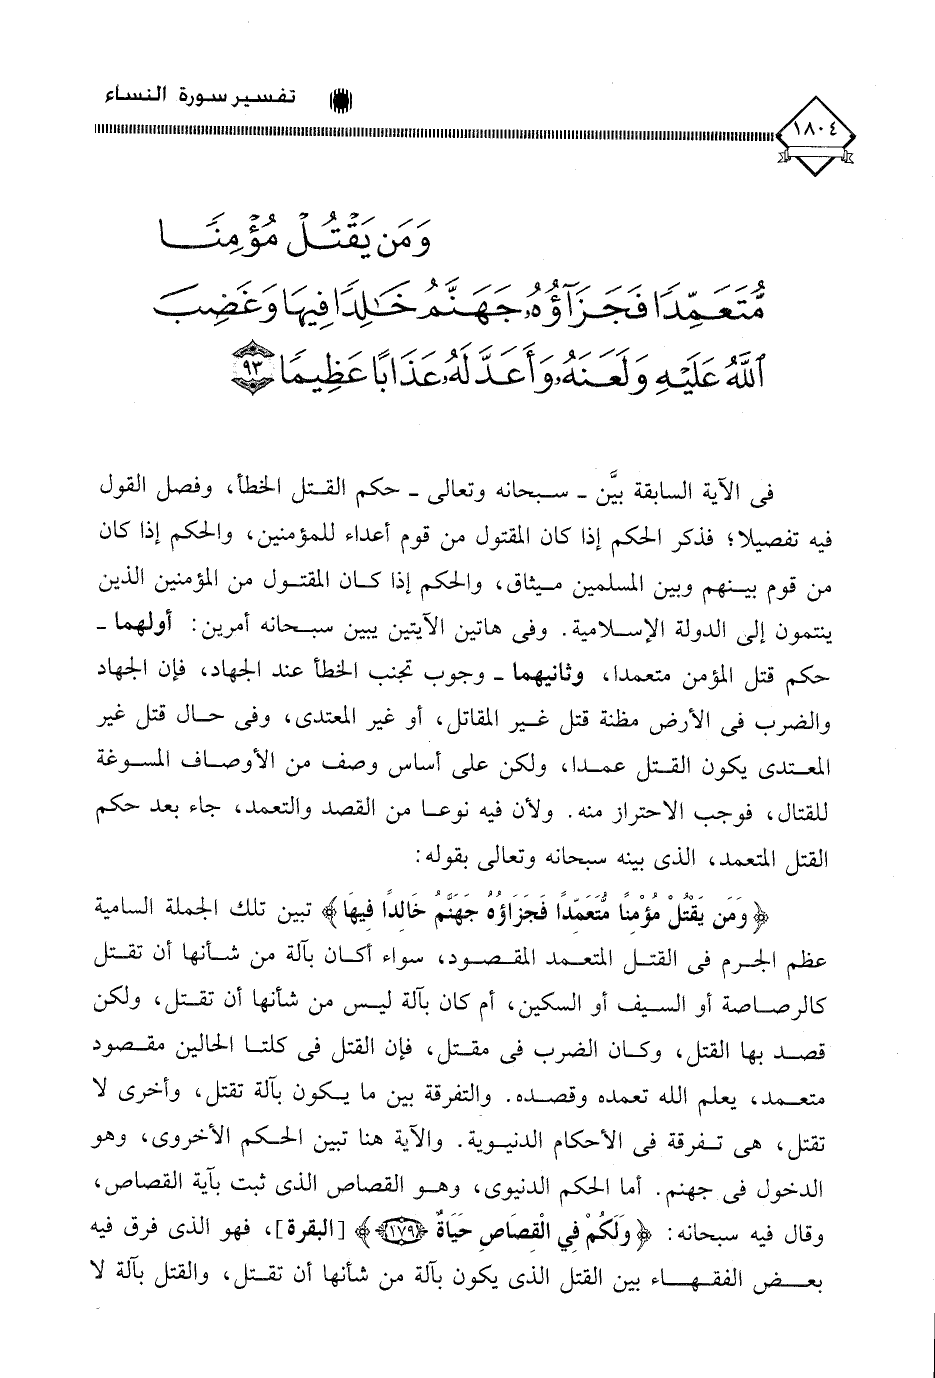 تفسير سورة النساء
١٨٠٤
وَمَن يَقْتُلْ مُؤْمِنًا
مُّتَعَمِّدًا فَجَزَآؤُهُۥ جَهَنَّمُ خَـٰلِدًا فِيهَا وَغَضِبَ
ٱللَّهُ عَلَيْهِ وَلَعَنَهُۥ وَأَعَدَّ لَهُۥ عَذَابًا عَظِيمًا ٩٣
فى الآية السابقة بيَّن ـ سبحانه وتعالى ـ حكم القتل الخطأ، وفصل القول
فيه تفصيلا؛ فذكر الحكم إذا كان المقتول من قوم أعداء للمؤمنين، والحكم إذا كان
من قوم بينهم وبين المسلمين ميثاق، والحكم إذا كان المقتول من المؤمنين الذين
ينتمون إلى الدولة الإسلامية. وفى هاتين الآيتين يبين سبحانه أمرين: أولهما ـ
حكم قتل المؤمن متعمدا، وثانيهما ـ وجوب تجنب الخطأ عند الجهاد، فإن الجهاد
والضرب فى الأرض مظنة قتل غير المقاتل، أو غير المعتدى، وفى حال قتل غير
المعتدى يكون القتل عمدا، ولكن على أساس وصف من الأوصاف المسوغة
للقتال، فوجب الاحتراز منه. ولأن فيه نوعا من القصد والتعمد، جاء بعد حكم
القتل المتعمد، الذى بينه سبحانه وتعالى بقوله:
﴿وَمَن يَقْتُلْ مُؤْمِنًا مُّتَعَمِّدًا فَجَزَاؤُهُ جَهَنَّمُ خَالِدًا فِيهَا﴾ تبين تلك الجملة السامية
عظم الجرم فى القتل المتعمد المقصود، سواء أكان بآلة من شأنها أن تقتل
كالرصاصة أو السيف أو السكين، أم كان بآلة ليس من شأنها أن تقتل، ولكن
قصد بها القتل، وكان الضرب فى مقتل، فإن القتل فى كلتا الحالين مقصود
متعمد، يعلم الله تعمده وقصده. والتفرقة بين ما يكون بآلة تقتل، وأخرى لا
تقتل، هى تفرقة فى الأحكام الدنيوية. والآية هنا تبين الحكم الأخروى، وهو
الدخول فى جهنم. أما الحكم الدنيوى، وهو القصاص الذى ثبت بآية القصاص،
وقال فيه سبحانه: ﴿وَلَكُمْ فِي الْقِصَاصِ حَيَاةٌ ١٧٩﴾ [البقرة]، فهو الذى فرق فيه
بعض الفقهاء بين القتل الذى يكون بآلة من شأنها أن تقتل، والقتل بآلة لا